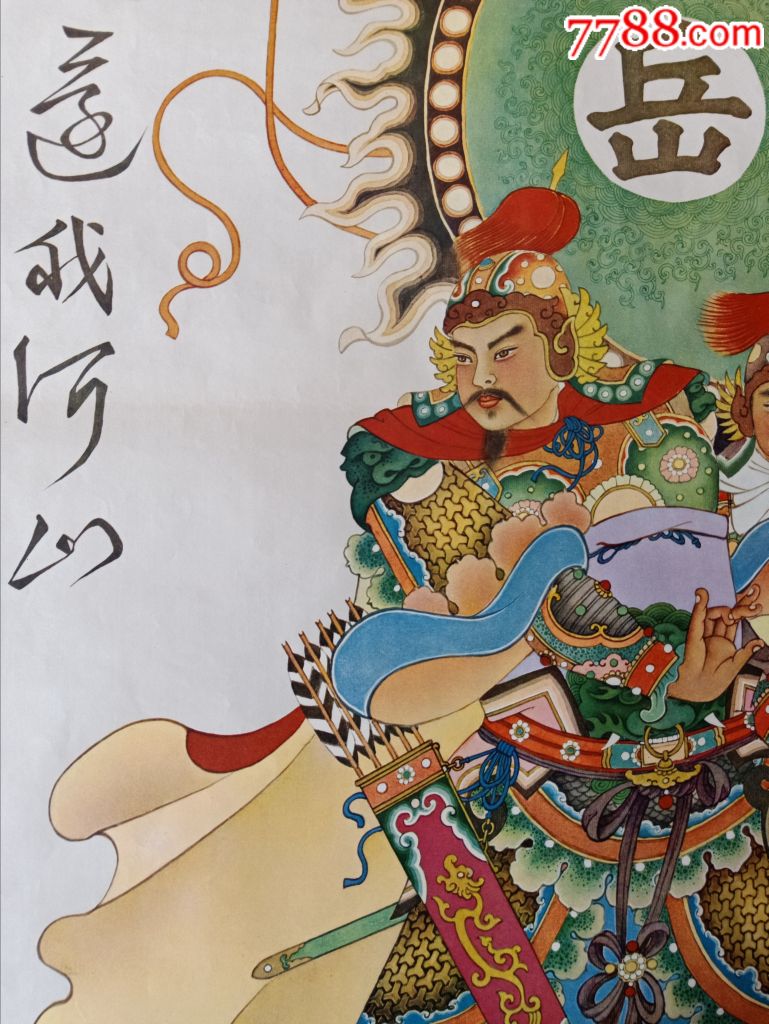 7788.com
岳
還我河山